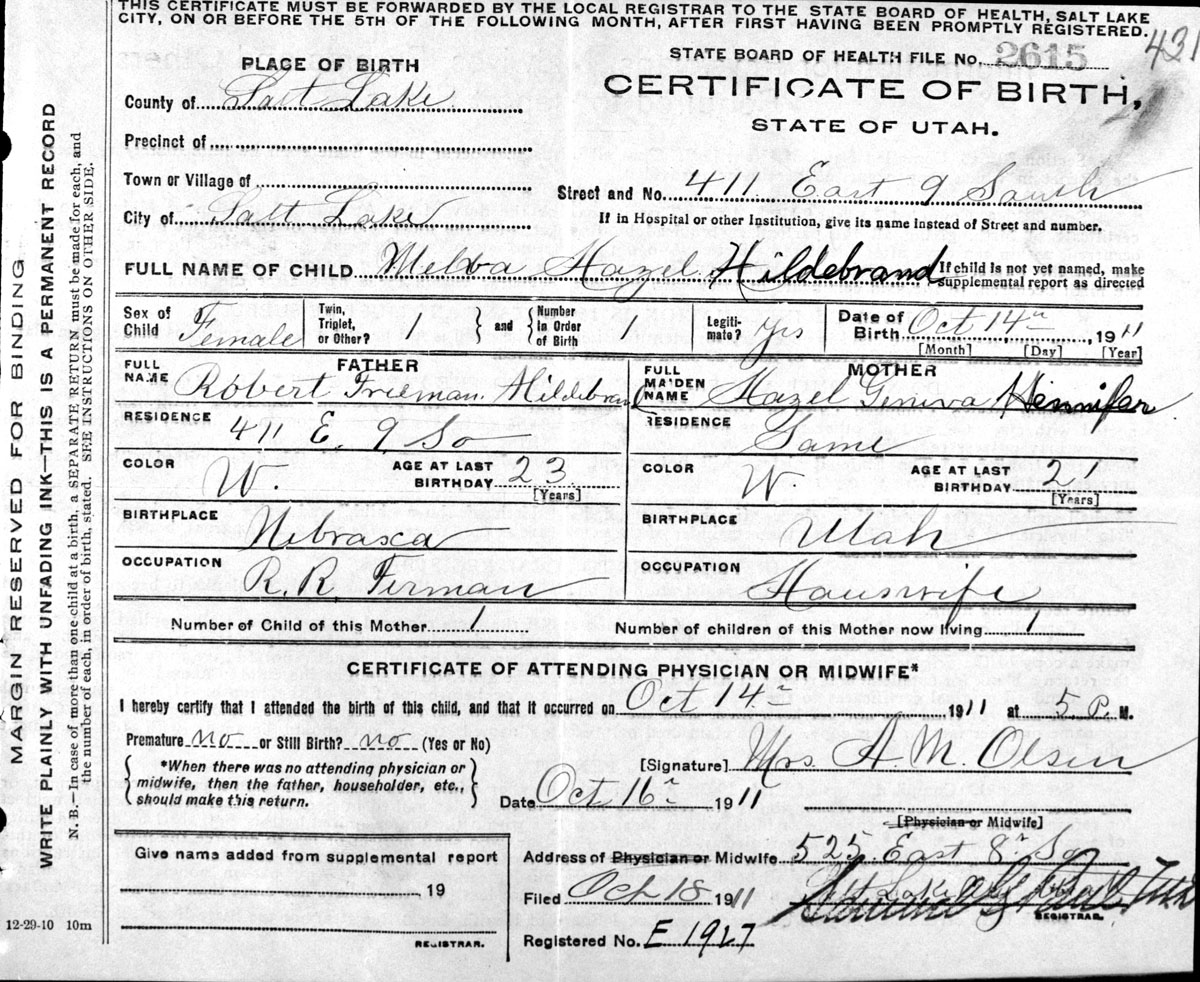 THIS CERTIFICATE MUST BE FORWARDED BY THE LOCAL REGISTRAR TO THE STATE BOARD OF HEALTH, SALT LAKE
CITY, ON OR BEFORE THE 5TH OF THE FOLLOWING MONTH, AFTER FIRST HAVING BEEN PROMPTLY REGISTERED.
431
STATE BOARD OF HEALTH FILE No. 2615
CERTIFICATE OF BIRTH,
STATE OF UTAH.
PLACE OF BIRTH
County of Salt Lake
Precinct of
Town or Village of
City of Salt Lake
Street and No. 411 East 9 South
If in Hospital or other Institution, give its name instead of Street and number.
FULL NAME OF CHILD Melba Hazel Hildebrand
If child is not yet named, make
supplemental report as directed
Sex of Child Female
Twin, Triplet, or Other? 1
and
Number in Order of Birth 1
Legiti-mate? Yes
Date of Birth Oct 14th 1911
[Month] [Day] [Year]
FATHER
FULL NAME Robert Freeman Hildebrand
RESIDENCE 411 E. 9 So
COLOR W. AGE AT LAST BIRTHDAY 23
[Years]
BIRTHPLACE Nibrasca
OCCUPATION R. R. Firman
MOTHER
FULL MAIDEN NAME Hazel Geniva Hennifer
RESIDENCE Same
COLOR W. AGE AT LAST BIRTHDAY 21
[Years]
BIRTHPLACE Utah
OCCUPATION Hauswife
Number of Child of this Mother 1
Number of children of this Mother now living 1
CERTIFICATE OF ATTENDING PHYSICIAN OR MIDWIFE*
I hereby certify that I attended the birth of this child, and that it occurred on Oct 14th 1911 at 5 P. M.
Premature no or Still Birth? no (Yes or No)
*When there was no attending physician or
midwife, then the father, householder, etc.,
should make this return.
[Signature] Mrs. A. M. Olsen
Date Oct 16th 1911
[Physician or Midwife]
Give name added from supplemental report
19
REGISTRAR.
Address of Physician or Midwife 525 East 8th So
Salt Lake City Utah
Filed Oct 18 1911
REGISTRAR.
Registered No. E 1927
12-29-10 10m
MARGIN RESERVED FOR BINDING
WRITE PLAINLY WITH UNFADING INK—THIS IS A PERMANENT RECORD
N. B.—In case of more than one child at a birth, a SEPARATE RETURN must be made for each, and
the number of each, in order of birth, stated. SEE INSTRUCTIONS ON OTHER SIDE.